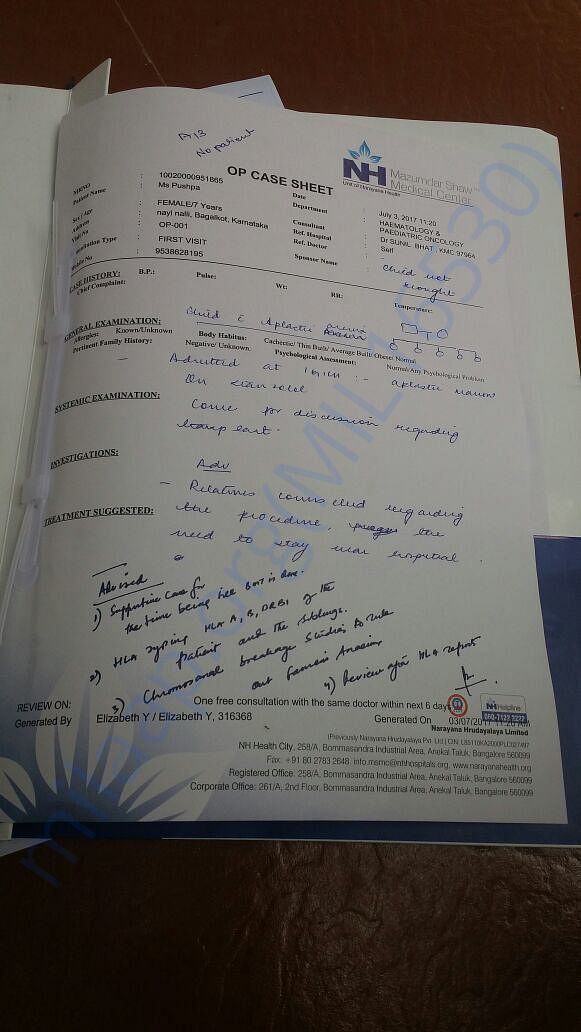 A/B
No patient
NH Mazumdar Shaw™
Medical Center
Unit of Narayana Health
OP CASE SHEET
MRNO : 10020000951865
Patient Name : Ms Pushpa
Sex / Age : FEMALE/7 Years
Address : nayi nalli, Bagalkot, Karnataka
Visit No : OP-001
Consultation Type : FIRST VISIT
Mobile No : 9538628195
Date : July 3, 2017 11:20
Department : HAEMATOLOGY & PAEDIATRIC ONCOLOGY
Consultant : Dr SUNIL BHAT, KMC 37964
Ref. Hospital : Self
Ref. Doctor :
Sponsor Name :
Child not
brought
CASE HISTORY: B.P.: Pulse: Wt: RR: Temperature:
Chief Complaint:
Child c Aplastic anemia
GENERAL EXAMINATION:
Allergies: Known/Unknown Body Habitus: Cachectic/ Thin Built/ Average Built/ Obese/ Normal
Pertinent Family History: Negative/ Unknown: Psychological Assessment: Normal/Any Psychological Problem
- Admitted at :- aplastic marrow
On
SYSTEMIC EXAMINATION:
Come for discussion regarding
transplant.
INVESTIGATIONS:
Adv
- Relatives counselled regarding
TREATMENT SUGGESTED:
the procedure, the
need to stay near hospital.
Advised
1) Supportive care for
the time being till BMT is done.
2) HLA typing HLA A, B, DRB1 of the
patient and the siblings.
3) Chromosomal breakage studies to rule
out Fanconi Anaemia
4) Review after HLA report
REVIEW ON: One free consultation with the same doctor within next 6 days
Generated By Elizabeth Y / Elizabeth Y, 316368 Generated On 03/07/2017 11:20 AM
NH Helpline
Narayana Hrudayalaya Limited
(Previously Narayana Hrudayalaya Pvt. Ltd.) CIN: L85110KA2000PLC027497
NH Health City, 258/A, Bommasandra Industrial Area, Anekal Taluk, Bangalore 560099
Fax: +91 80 2783 2648 info.msmc@nhhospitals.org, www.narayanahealth.org
Registered Office: 258/A, Bommasandra Industrial Area, Anekal Taluk, Bangalore 560099
Corporate Office: 261/A, 2nd Floor, Bommasandra Industrial Area, Anekal Taluk, Bangalore 560099